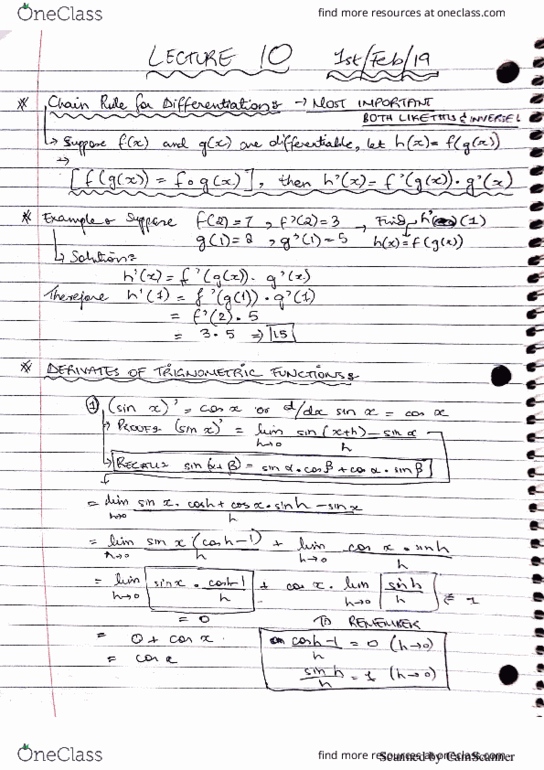 OneClass
find more resources at oneclass.com
LECTURE 10 1st/Feb/19
* Chain Rule for Differentiations → MOST IMPORTANT
BOTH LIKE THIS & INVERSE
↳ Suppose f(x) and g(x) are differentiable, let h(x) = f(g(x))
→ [f(g(x)) = fog(x)], then h'(x) = f'(g(x)) · g'(x)
* Example: Suppose f(2)=7, f'(2)=3 → Find h'(1)
g(1)=8, g'(1)=5 h(x)=f(g(x))
↳ Solution:
h'(x) = f'(g(x)) · g'(x)
Therefore h'(1) = f'(g(1)) · g'(1)
= f'(2) · 5
= 3 · 5 ⇒ 15
* DERIVATES OF TRIGNOMETRIC FUNCTIONS:
① (sin x)' = cos x or d/dx sin x = cos x
↳ PROOF: (sin x)' = lim h→0 sin (x+h) - sin x / h
↳ RECALL: sin(α+β) = sin α · cos β + cos α · sin β
= lim h→0 sin x · cosh + cos x · sinh - sin x / h
= lim h→0 sin x (cosh-1) / h + lim h→0 cos x · sinh / h
= lim h→0 sin x · cosh-1 / h + cos x · lim h→0 sinh / h
= 0 TO REMEMBER
= 0 + cos x cosh-1 / h = 0 (h→0)
= cos x
sin h / h = 1 (h→0)
OneClass
find more resources at oneclass.com
Scanned by CamScanner